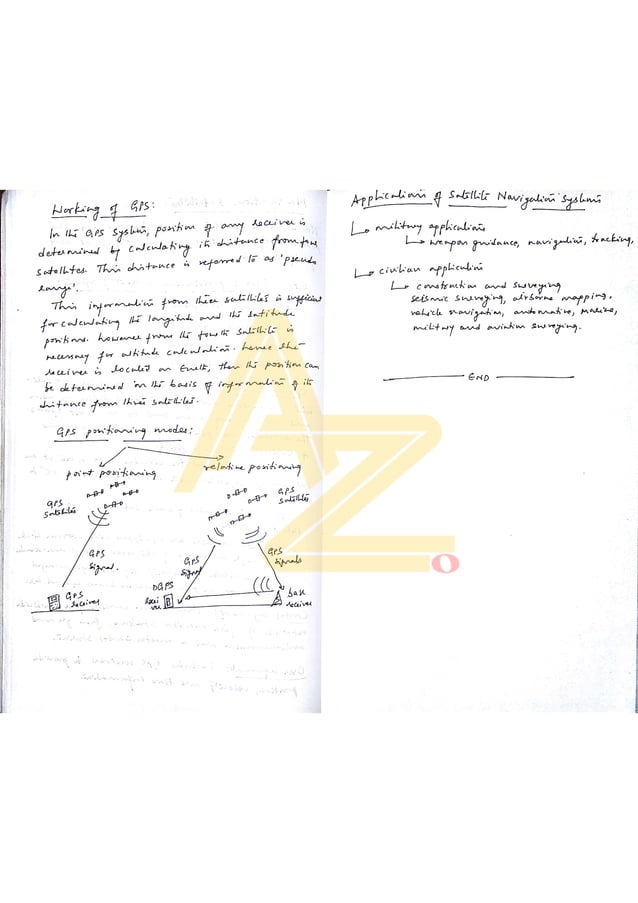 Working of GPS:
In the GPS system, position of any receiver is
determined by calculating its distance from four
satellites. This distance is referred to as 'pseudo
range'.
This information from three satellites is sufficient
for calculating the longitude and the latitude
positions. however from the fourth satellite is
necessary for altitude calculation. hence the
receiver is located on Earth, then the position can
be determined on the basis of information of its
distance from three satellites.
GPS positioning modes:
point positioning
relative positioning
GPS
satellites
GPS
signal.
GPS
receiver
GPS
satellites
GPS
signal
GPS
signals
DGPS
Recei
ver
base
receiver
Application of Satellite Navigation Systems
military applications
weapon guidance, navigation, tracking,
civilian application
construction and surveying
seismic surveying, airborne mapping,
vehicle navigation, automotive, marine,
military and aviation surveying.
END
AZ